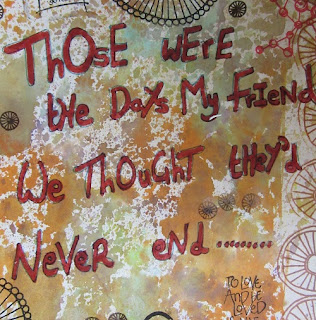 THOSE WERE
tHE DAYS MY FRIEND
WE THOUGHT tHEY'D
NEVER END.........
TO LOVE
AND BE
LOVED